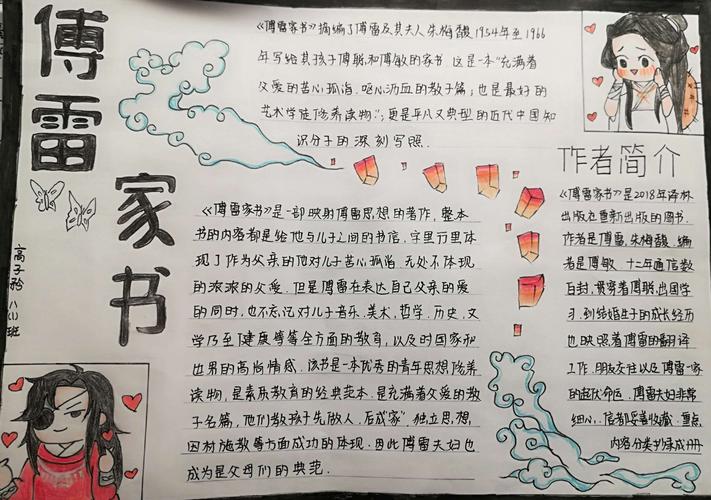 傅雷
家书
高子矜 八(1)班
《傅雷家书》摘编了傅雷及其夫人朱梅馥1954年至1966
年写给其孩子傅聪和傅敏的家书 这是一本"充满着
父爱的苦心孤诣、呕心沥血的教子篇;也是最好的
艺术学徒修养读物";更是平凡又典型的近代中国知
识分子的深刻写照.
《傅雷家书》是一部映射傅雷思想的著作,整本
书的内容都是给他与儿子之间的书信,字里行里体
现了作为父亲的他对儿子苦心孤诣.无处不体现
的浓浓的父爱.但是傅雷在表达自己父亲的爱
的同时,也不忘记对儿子音乐.美术,哲学.历史.文
学乃至于健康等等全方面的教育,以及时国家和
世界的高尚情感.该书是一本优秀的青年思想修养
读物,是素质教育的经典范本.是充满着父爱的教
子名篇,他们教孩子先做人.后成"家".独立思想,
因材施教等方面成功的体现.因此傅雷夫妇也
成为是父母们的典范.
作者简介
《傅雷家书》是2018年译林
出版在重新出版的图书.
作者是傅雷.朱梅馥.编
者是傅敏.十二年通信数
百封,贯穿着傅聪出国学
习.到结婚生子的成长经历
也映照着傅雷的翻译
工作.朋友交往以及傅雷一家
的起伏命运.傅雷夫妇非常
细心.信都妥善收藏.重点
内容分类抄录成册